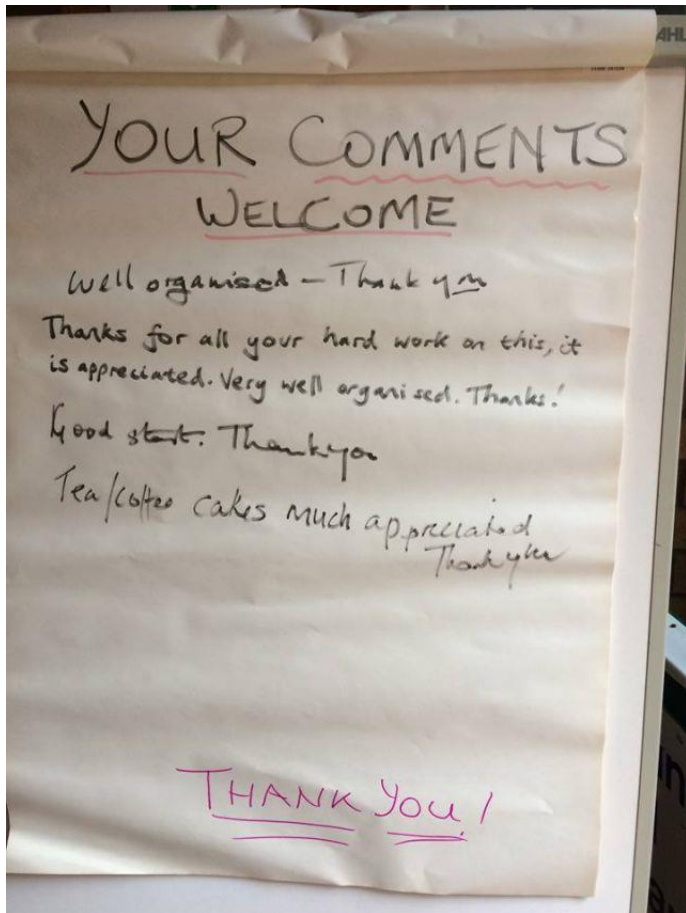 YOUR COMMENTS
WELCOME
Well organised – Thank you
Thanks for all your hard work on this, it
is appreciated. Very well organised. Thanks!
Good start. Thankyou
Tea/Coffee cakes much appreciated
Thank you
THANK YOU!
AHL